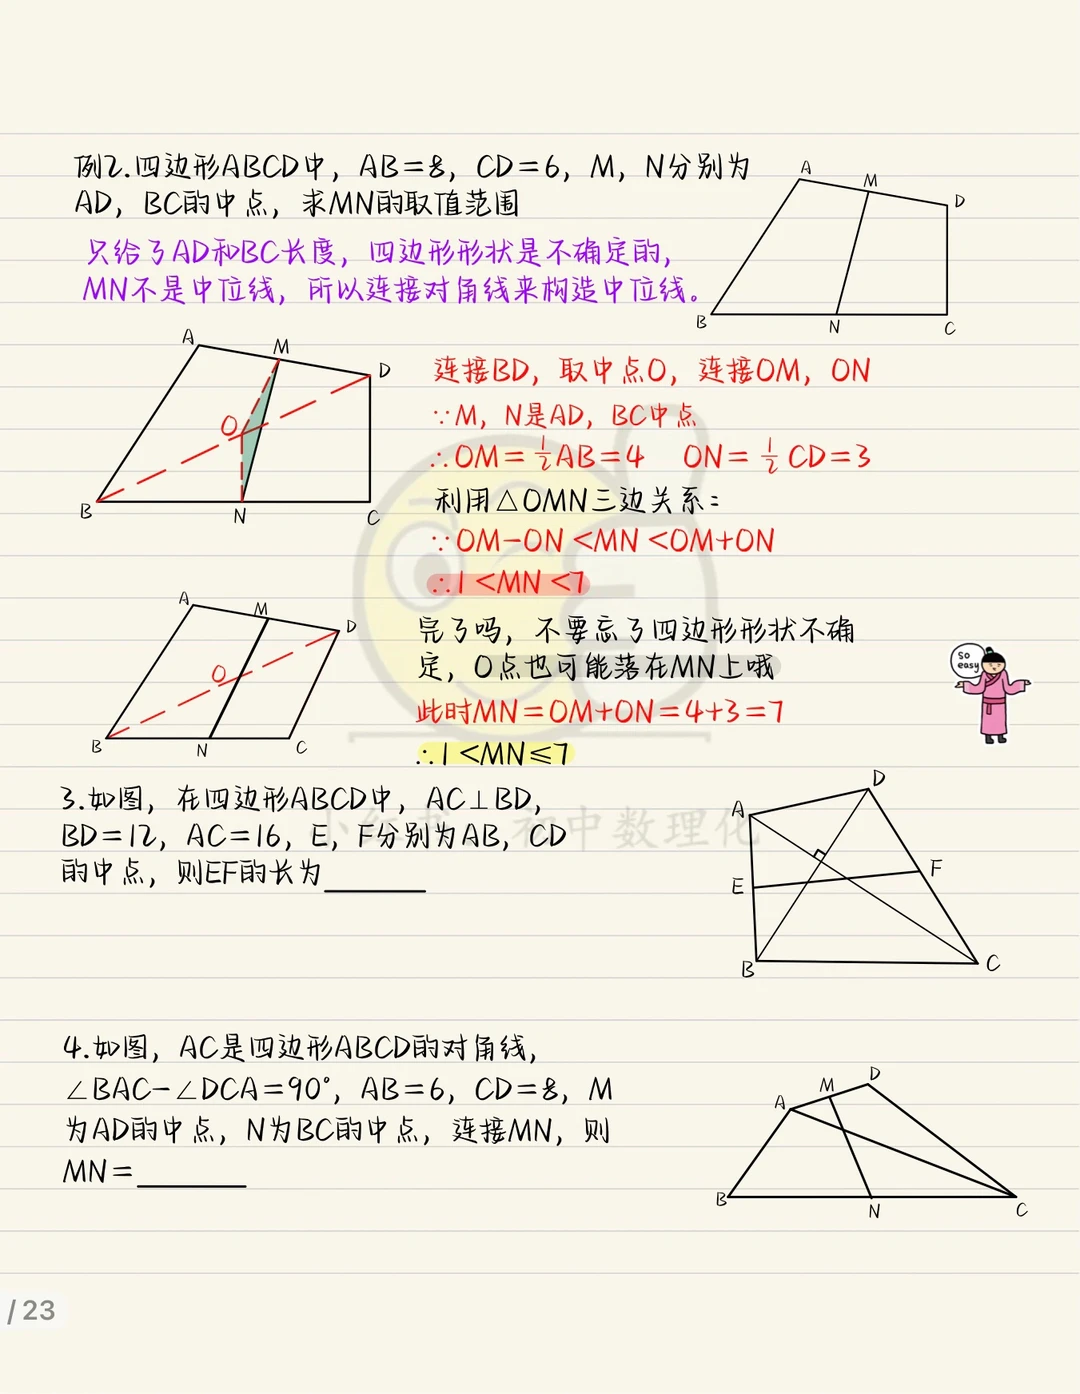 例2.四边形ABCD中，AB=8，CD=6，M，N分别为
AD，BC的中点，求MN的取值范围
只给了AD和BC长度，四边形形状是不确定的，
MN不是中位线，所以连接对角线来构造中位线。
A
M
D
B
N
C
A
M
D
O
B
N
C
连接BD，取中点O，连接OM，ON
∵M，N是AD，BC中点
∴OM=½AB=4 ON=½CD=3
利用△OMN三边关系：
∵OM-ON<MN<OM+ON
∴1<MN<7
A
M
D
O
B
N
C
完了吗，不要忘了四边形形状不确
定，O点也可能落在MN上哦
此时MN=OM+ON=4+3=7
∴1<MN≤7
so
easy
小红书 初中数理化
3.如图，在四边形ABCD中，AC⊥BD，
BD=12，AC=16，E，F分别为AB，CD
的中点，则EF的长为______
D
A
E
F
B
C
4.如图，AC是四边形ABCD的对角线，
∠BAC-∠DCA=90°，AB=6，CD=8，M
为AD的中点，N为BC的中点，连接MN，则
MN=______
D
M
A
B
N
C
/23